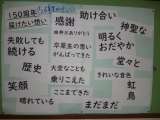 150周年
届けたい想い
感謝
助け合い
神聖な
失敗しても
続ける
卒業生の思い
がんばってきた
明るく
おだやか
歴史
大変なことも
乗りこえて
ここまできた
堂々と
きれいな音色
笑顔
虹
鳥
晴れている
まだまだ